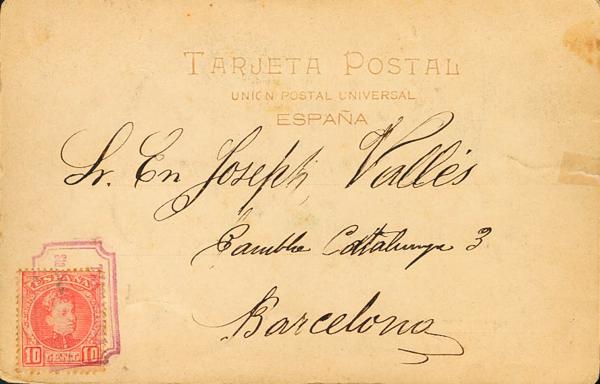 TARJETA POSTAL
UNIÓN POSTAL UNIVERSAL
ESPAÑA
Sr. En Joseph Vallés
Rambla Catalunya 3
Barcelona
ESPAÑA
10 CENTS 10